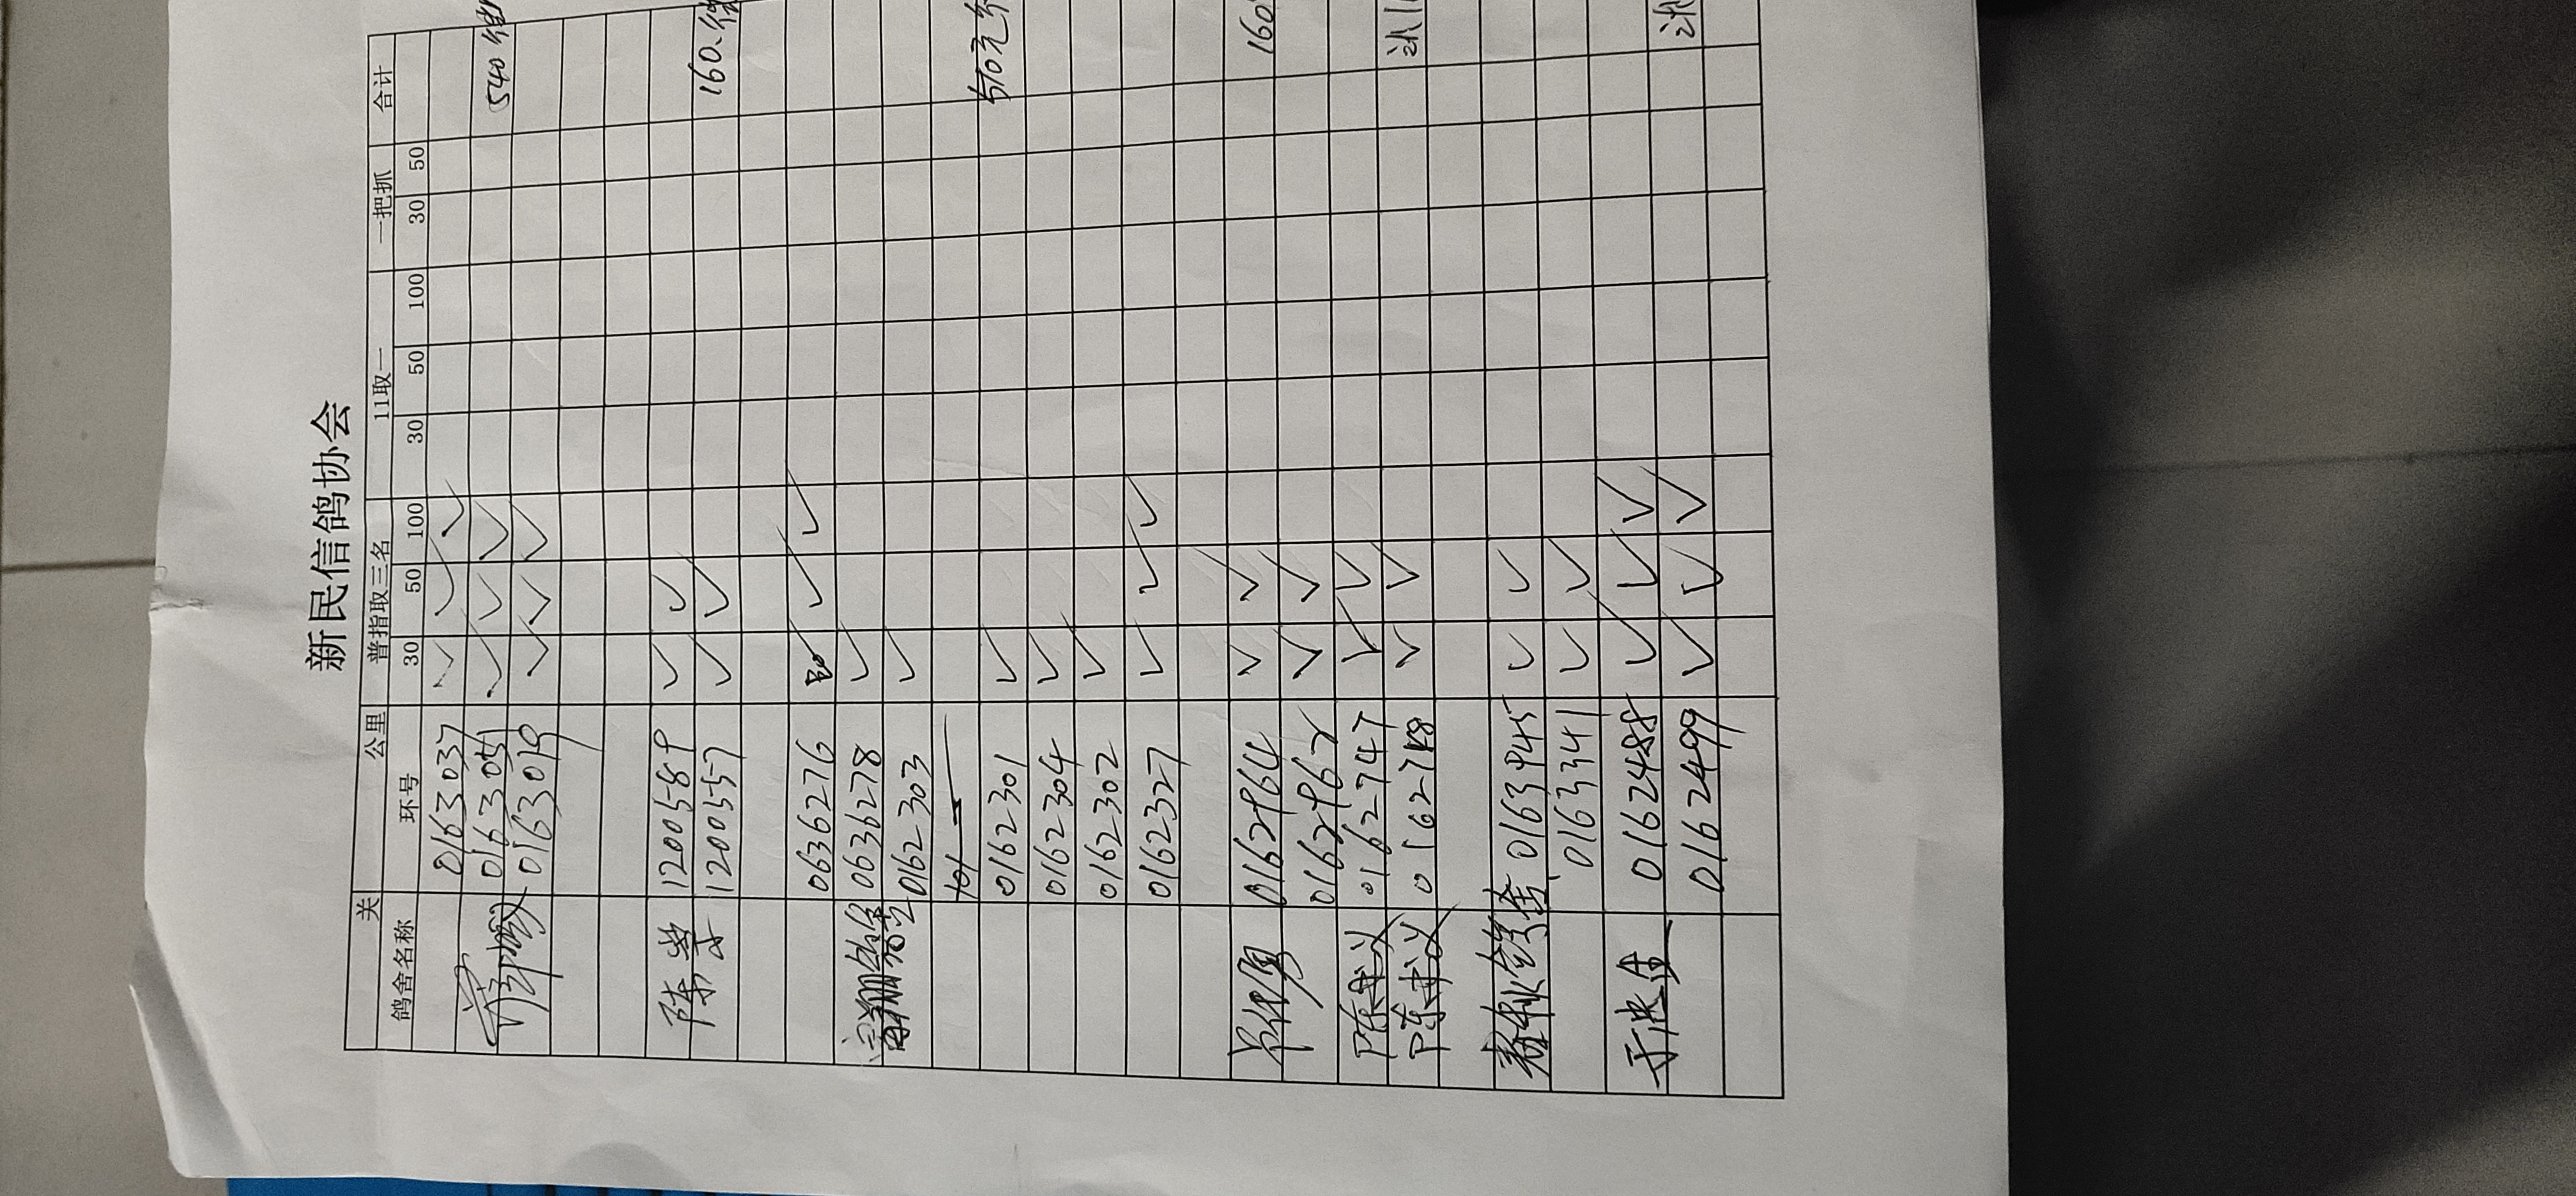 新民信鸽协会
关 公里 普指取三名 11取一 一把抓 合计
鸽舍名称 环号 30 50 100 30 50 100 30 50
0163037 ✓ ✓ ✓
0163051 ✓ ✓ ✓ 540
0163019 ✓ ✓ ✓
陈学 1200589 ✓ ✓
1200557 ✓ ✓ 160
0636276 ✓ ✓
0636278 ✓
0162303 ✓
0162301 ✓ 510元
0162304 ✓
0162302 ✓
0162327 ✓ ✓ ✓
单伟勇 0162964 ✓ ✓ 160
0162962 ✓ ✓
陈 0162747 ✓ ✓
陈 0162748 ✓ ✓
0163945 ✓ ✓
0163341 ✓ ✓
于忠生 0162488 ✓ ✓ ✓
0162499 ✓ ✓ ✓